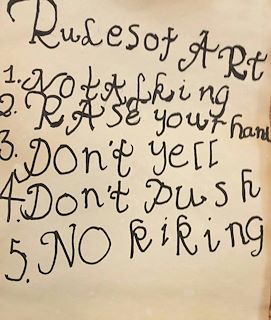 Rules of ARt
1. No tAlking
2. RAse your hand
3. Don't yell
4. Don't Push
5. NO kiking